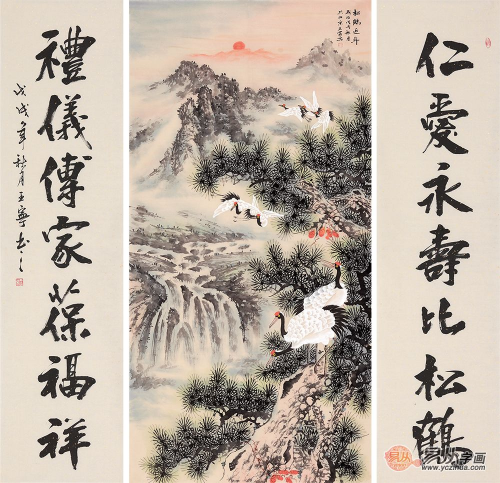 仁愛永壽比松鶴
松鶴延年
禮儀傳家葆福祥
戊戌年秋月王寧书
易从字画
www.yczihua.com